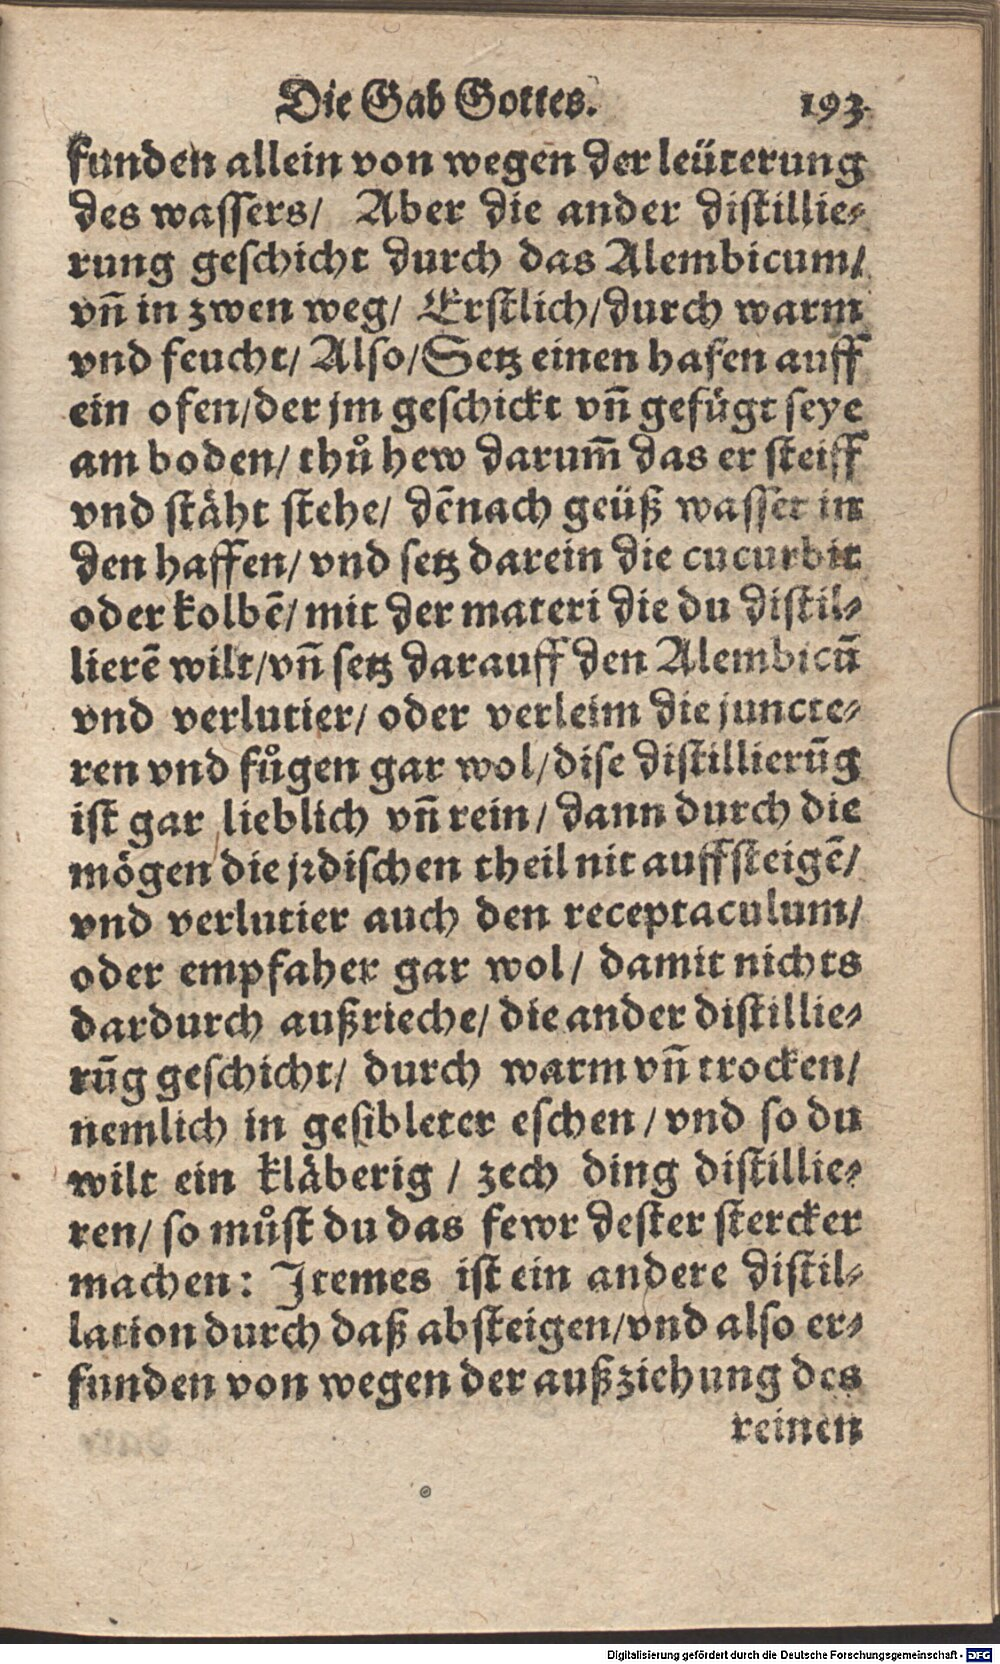 Die Gab Gottes. 193.
funden allein von wegen der leüterung
des wassers/ Aber die ander distillie⸗
rung geschicht durch das Alembicum/
vñ in zwen weg/ Erstlich/ durch warm
vnd feucht/ Also/ Setz einen hafen auff
ein ofen/ der jm geschickt vñ gefügt seye
am boden/ thů hew darum̃ das er steiff
vnd stäht stehe/ dēnach geüß wasser in
den haffen/ vnd setz darein die cucurbit
oder kolbē/ mit der materi die du distil⸗
lierē wilt/ vñ setz darauff den Alembicū
vnd verlutier/ oder verleim die juncte⸗
ren vnd fůgen gar wol/ dise distillierūg
ist gar lieblich vñ rein/ dann durch die
mögen die jrdischen theil nit auffsteigē/
vnd verlutier auch den receptaculum/
oder empfaher gar wol/ damit nichts
dardurch außrieche/ die ander distillie⸗
rūg geschicht/ durch warm vñ trocken/
nemlich in gesibleter eschen/ vnd so du
wilt ein kläberig/ zech ding distillie⸗
ren/ so můst du das fewr dester stercker
machen: Item es ist ein andere distil⸗
lation durch daß absteigen/ vnd also er⸗
funden von wegen der außziehung des
reinen
Digitalisierung gefördert durch die Deutsche Forschungsgemeinschaft - DFG